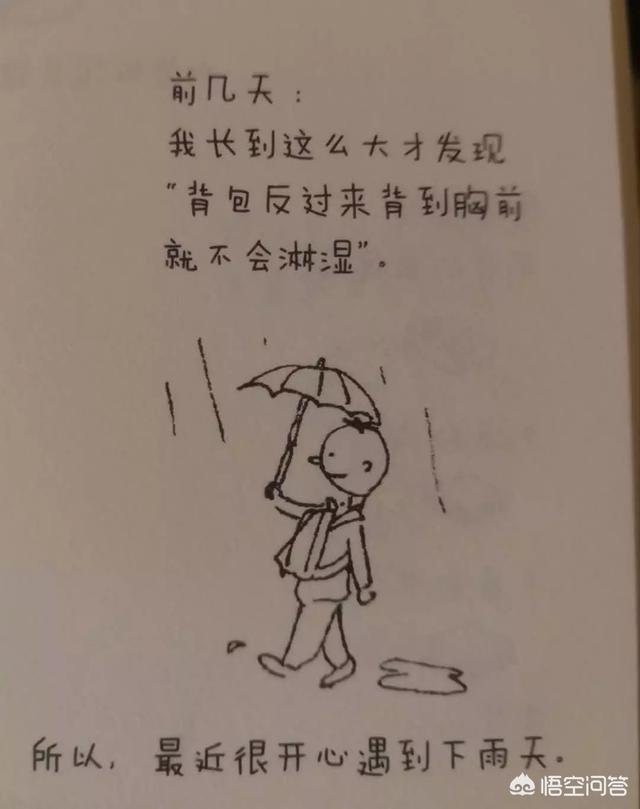 前几天：
我长到这么大才发现
“背包反过来背到胸前
就不会淋湿”。
所以，最近很开心遇到下雨天。
悟空问答